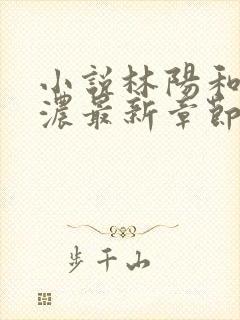 小説林陽和
濃最新章節
步千山